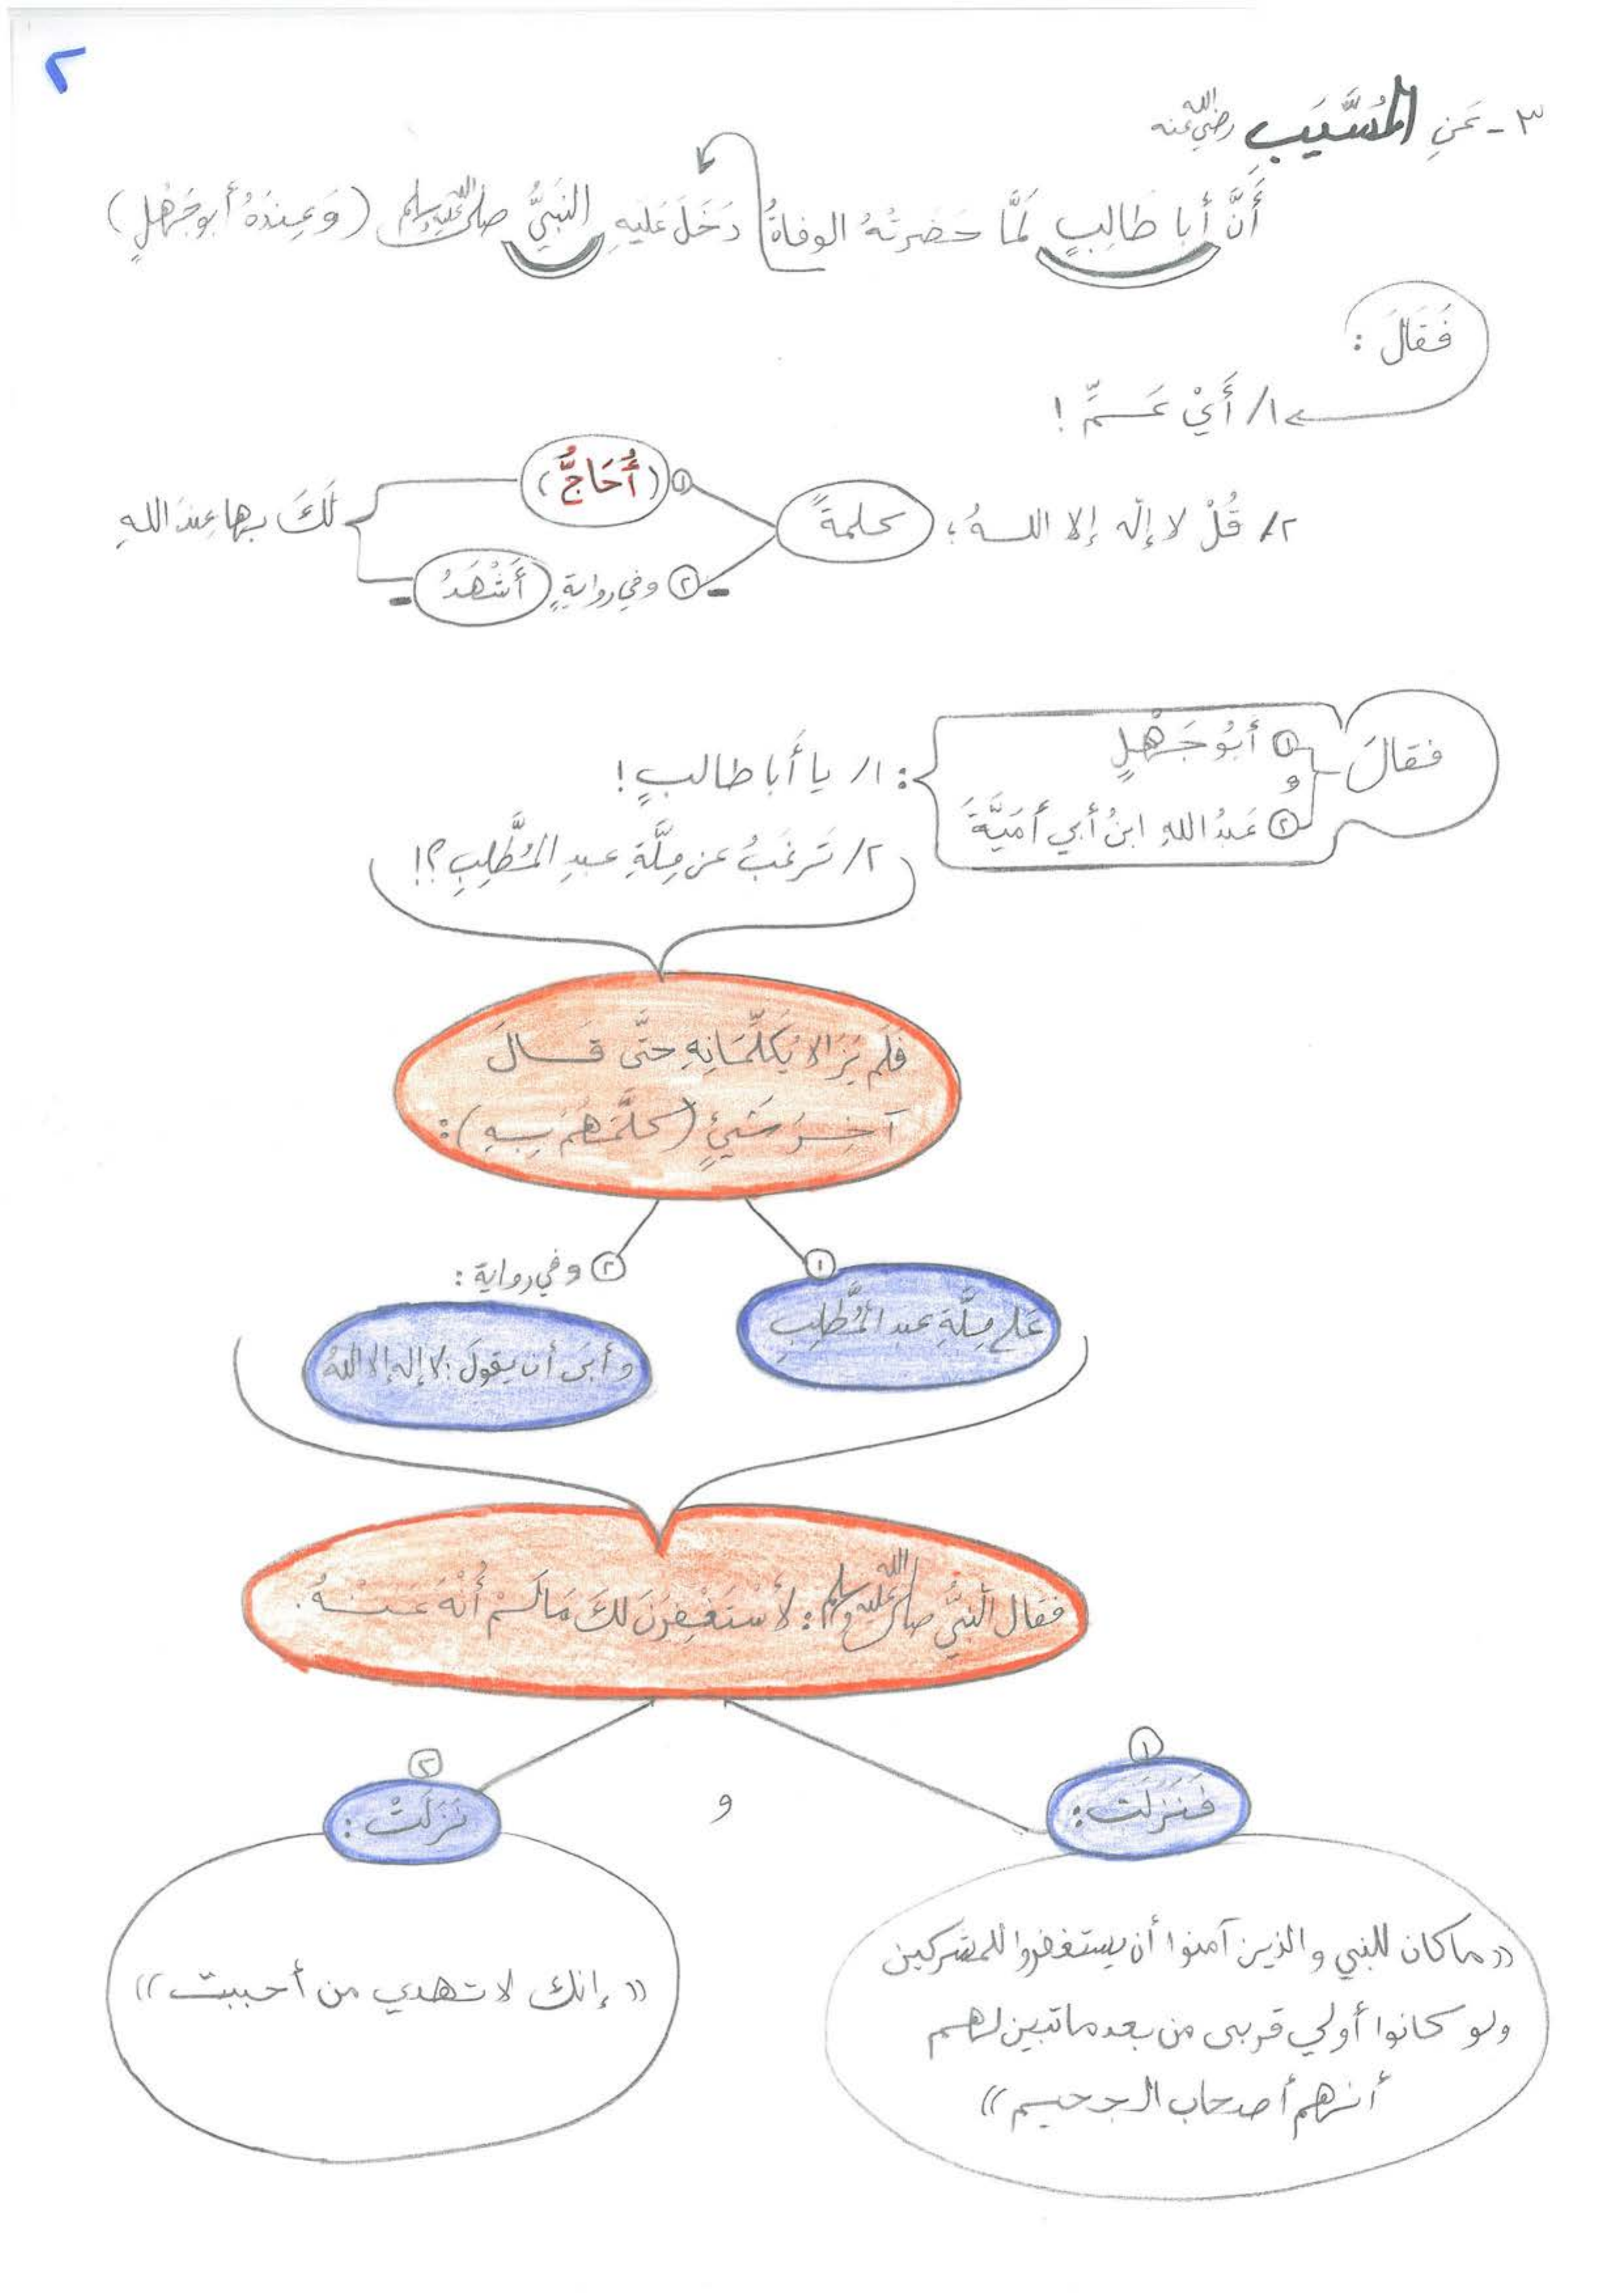 ٢
٣ - عَنِ المُسَّيَبِ رضي الله عنه
أَنَّ أبا طالِبٍ لَمَّا حَضَرَتْهُ الوفاةُ دَخَلَ عَليهِ النَبيُّ صلى الله عليه وسلم (وَعِندَهُ أبوجَهْلٍ)
فَقَالَ :
١/ أَيْ عَــمِّ !
٢/ قُلْ لا إله إلا اللــهُ؛ كلمةً
① (أُحَاجُّ)
② وفي روايةٍ أَشْهَدُ
لَكَ بها عِندَ اللهِ
فقالَ
① أبُو جَهْلٍ
و
② عَبدُ اللهِ ابنُ أبي أمَيَّةَ
: ١/ يا أَبا طالبٍ !
٢/ تَرغَبُ عن مِلَّةِ عبدِ المُطَّلِبِ؟!
فَلَم يَزَالا يُكَلِّمَانِهِ حتَّى قَــالَ
آخِــرَ شَيئٍ (كلَّمَهُم بِــهِ) :
① عَلى مِلَّةِ عبد المُطَّلِبِ
② وفي رواية :
وأبَى أن يقولَ : لا إله إلا اللهُ
فقال النَبيُّ صلى الله عليه وسلم : لأَسْتَغْفِرَنَ لكَ مَا لَــمْ أُنْهَ عَــنْــهُ .
①
فَنَزَلَتْ :
و
②
نَزَلَتْ :
(( ما كان للنبي والذين آمنوا أن يستغفروا للمشركين
ولو كانوا أولي قربى من بعد ما تبين لهم
أنهم أصحاب الجحيم ))
(( إنك لا تهدي من أحببت ))